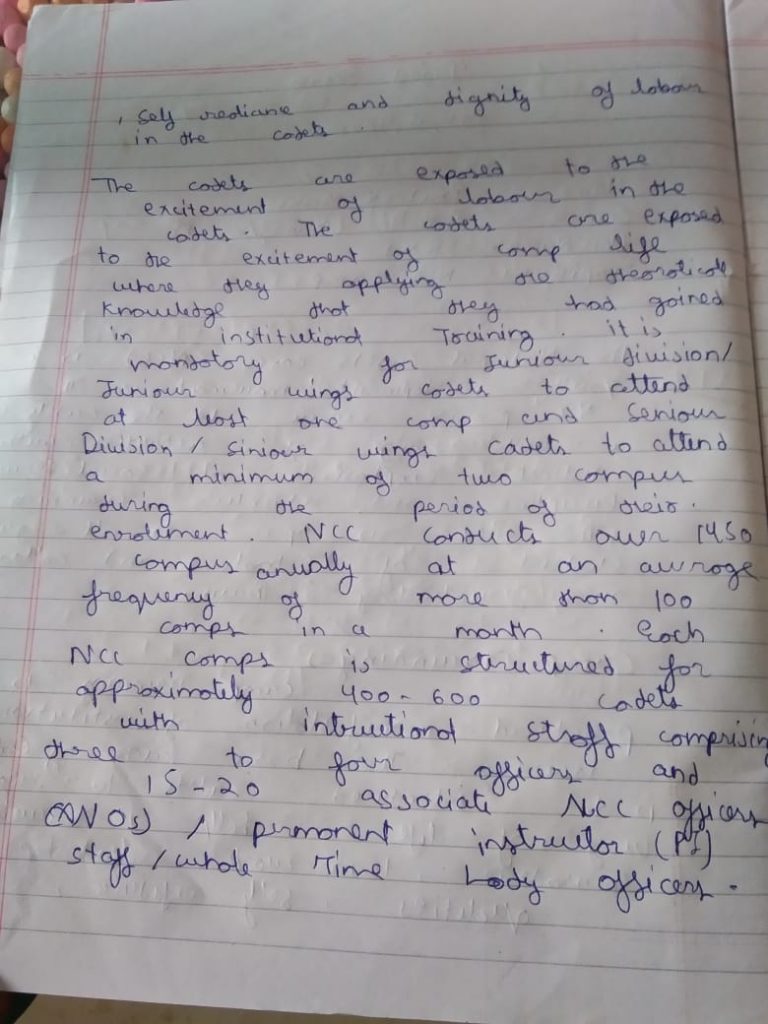 , Self rediance and dignity of labour
in the cadets.
The cadets are exposed to the
excitement of labour in the
cadets. The cadets are exposed
to the excitement of camp life
where they applying the theoroticale
Knowledge that they had gained
in institutional Training. it is
mandatory for Juniour division/
Juniour wings cadets to attend
at least one camp and Seniour
Division / Siniour wings cadets to attend
a minimum of two campus
during the period of their.
enrolment. NCC conducts over 1450
campus anually at an avrage
frequency of more than 100
camps in a month. Each
NCC camps is structured for
approximately 400-600 cadets
with intructional staff, comprising
three to four officers and
15-20 associate NCC officers
(ANOs) / permanent instructor (PI)
staff / whole Time Lady officers.